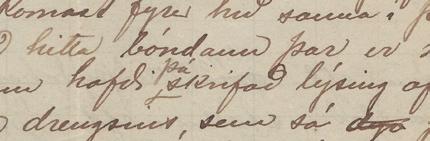 komast fyrir hið sanna í
hitta bóndann þar er
hafði þá skrifað lýsing af
drengsins, sem sá dyo